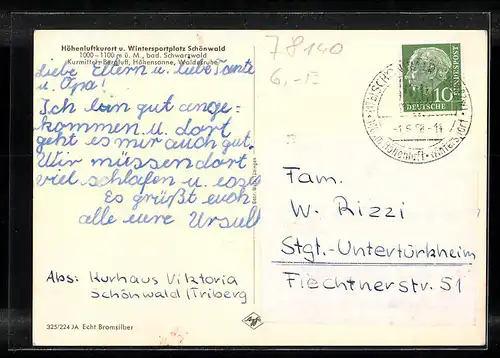 Höhenluftkurort u. Wintersportplatz Schönwald
1000-1100 m ü. M., bad. Schwarzwald
Kurmittel: Bergluft, Höhensonne, Waldesruhe
Liebe Eltern u. liebe Tante
u. Opa!
Ich bin gut ange-
kommen u. dort
geht es mir auch gut.
Wir müssen dort
viel schlafen u. essen
Es grüßt euch
alle eure Ursull
Abs: Kurhaus Viktoria
Schönwald (Triberg
325/224 JA Echt Bromsilber
78140
6,-
10
DEUTSCHE
BUNDESPOST
Fam.
W. Rizzi
Stgt.-Untertürkheim
Fiechtnerstr. 51